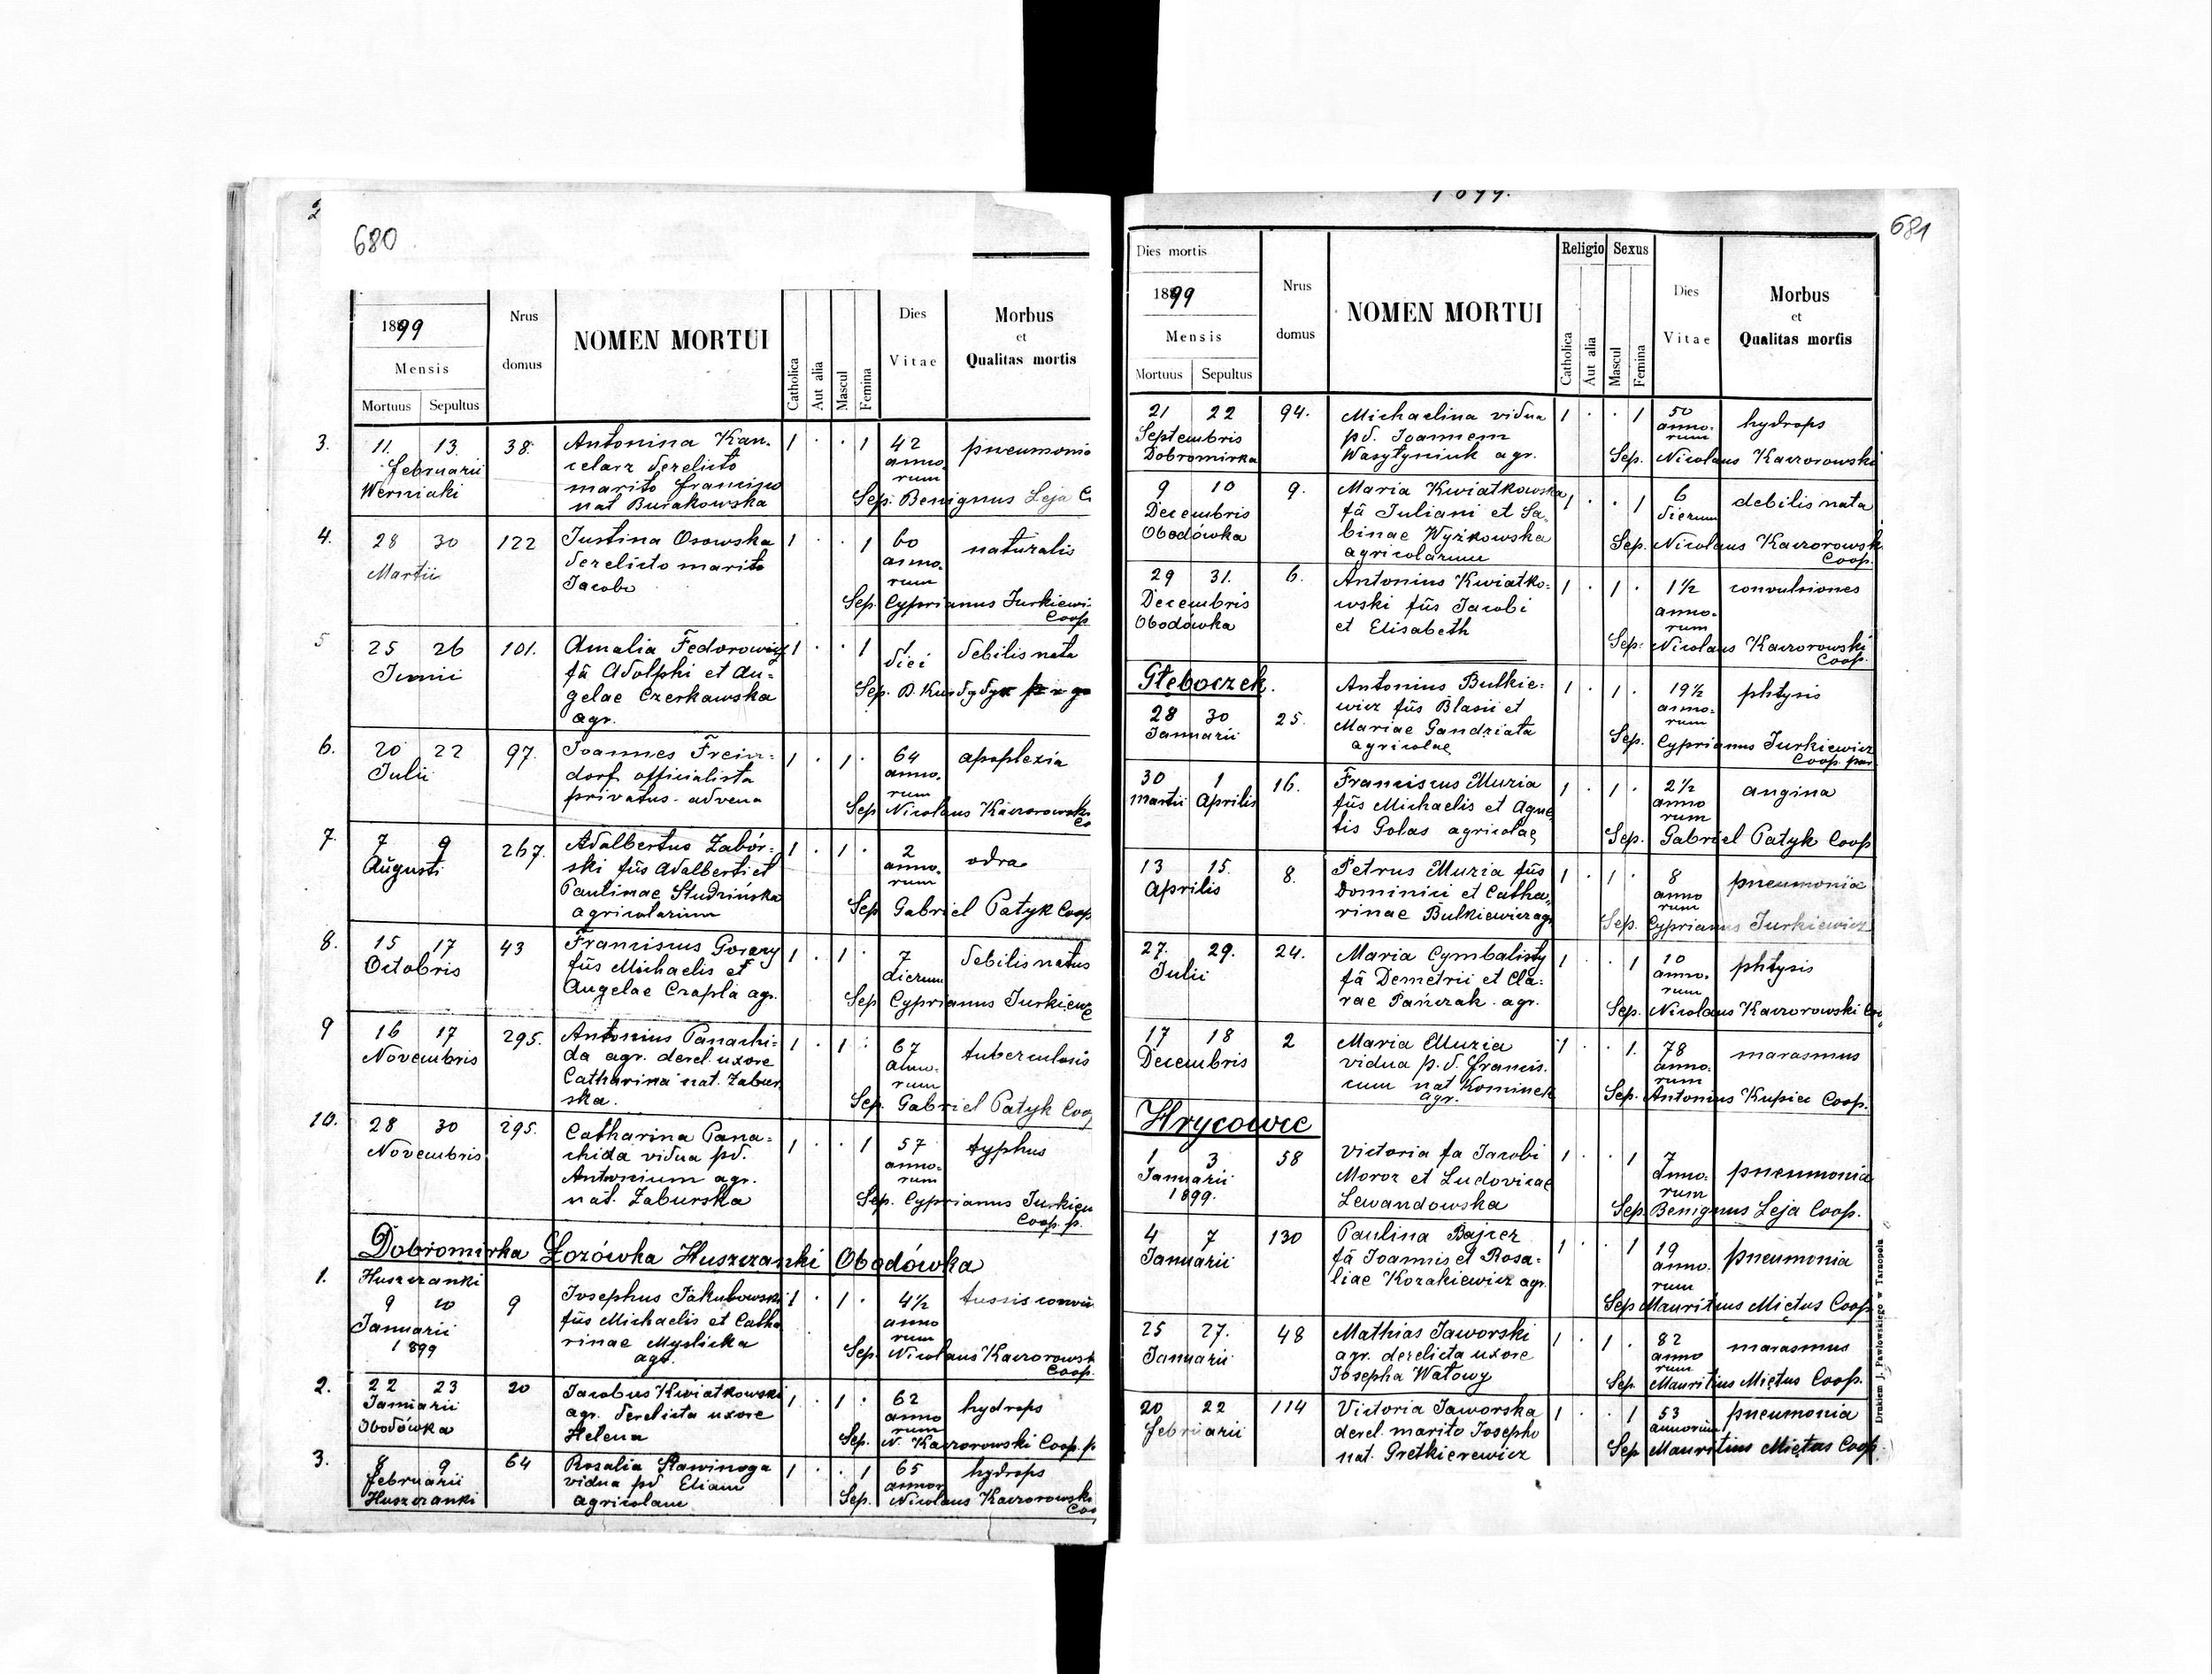 680
1899
Mensis
Mortuus Sepultus
Nrus
domus
NOMEN MORTUI
Catholica
Aut alia
Mascul
Femina
Dies
Vitae
Morbus
et
Qualitas mortis
3. 11. 13. 38. Antonina Kan- 1 . . 1 42 pneumonia
Februarii celarz derelicto anno-
Werniaki marito Francisco rum
nat Burakowska Sep. Benignus Leja C
4. 28 30 122 Justina Osowska 1 . . 1 60 naturalis
Martii derelicto marito anno-
Jacobo rum
Sep. Cyprianus Jurkiewi
Coop
5 25 26 101. Amalia Fedorowicz 1 . . 1 1 debilis nata
Junii fa Adolphi et An- diei
gelae Czerkawska Sep. D. Kurdydyk
agr.
6. 20 22 97. Joannes Frein- 1 . 1 . 64 apoplexia
Julii dorf officialista anno-
privatus - advena rum
Sep Nicolaus Kaczorowski
Co
7. 7 9 267. Adalbertus Zabór- 1 . 1 . 2 odra
Augusti ski fũs Adalberti et anno-
Paulinae Studzińska rum
agricolarum Sep Gabriel Patyk Coop
8. 15 17 43 Franciscus Gorazy 1 . 1 . 7 debilis natus
Octobris fũs Michaelis et dierum
Angelae Czapla agr. Sep Cyprianus Jurkiewc
9 16 17 295. Antonius Panachi- 1 . 1 . 67 tuberculosis
Novembris da agr. derel. uxore anno-
Catharina nat. Zabur rum
ska. Sep. Gabriel Patyk Coop
10. 28 30 295. Catharina Pana- 1 . . 1 57 typhus
Novembris chida vidua pd. anno-
Antonium agr. rum
nat. Zaburska Sep. Cyprianus Jurkiew
Coop. p.
Dobromirka Łozówka Huszczanki Obodówka
1. Huszczanki
9 10 9 Josephus Jakubowski 1 . 1 . 4½ tussis convu
Januarii fũs Michaelis et Catha anno
1899 rinae Myslicka rum
agr. Sep. Nicolaus Kaczorowsk
Coop.
2. 22 23 20 Jacobus Kwiatkowski 1 . 1 . 62 hydrops
Januarii agr. derelicta uxore anno
Obodówka Helena rum
Sep. N. Kaczorowski Coop. p
3. 8 9 64 Rosalia Sławinoga 1 . . 1 65 hydrops
Februarii vidua pd Eliam annor
Huszczanki agricolam Sep. Nicolaus Kaczorowski
Coo
1899.
681
Dies mortis
1899
Mensis
Mortuus Sepultus
Nrus
domus
NOMEN MORTUI
Religio
Catholica
Aut alia
Sexus
Mascul
Femina
Dies
Vitae
Morbus
et
Qualitas mortis
21 22 94. Michaelina vidua 1 . . 1 50 hydrops
Septembris pd. Joannem anno-
Dobromirka Wasyłyniuk agr. rum
Sep. Nicolaus Kaczorowski
9 10 9. Maria Kwiatkowska 1 . . 1 6 debilis nata
Decembris fã Juliani et Sa- dierum
Obodówka binae Wyżkowska Sep. Nicolaus Kaczorowsk
agricolarum Coop.
29 31. 6. Antonius Kwiatko- 1 . 1 . 1½ convulsiones
Decembris wski fũs Jacobi anno-
Obodówka et Elisabeth rum
Sep. Nicolaus Kaczorowski
Coop.
Głęboczek.
28 30 25. Antonius Bulkie- 1 . 1 . 19½ phtysis
Januarii wicz fũs Blasii et anno-
Mariae Gandziata rum
agricolae Sep. Cyprianus Jurkiewicz
Coop. par
30 1 16. Franciscus Muzia 1 . 1 . 2½ angina
Martii Aprilis fũs Michaelis et Agne anno
tis Golas agricolae rum
Sep. Gabriel Patyk Coop
13 15. 8. Petrus Muzia fũs 1 . 1 . 8 pneumonia
Aprilis Dominici et Catha- anno
rinae Bulkiewicz agr. rum
Sep. Cyprianus Jurkiewicz
27. 29. 24. Maria Cymbalisty 1 . . 1 10 phtysis
Julii fã Demetrii et Cla- anno-
rae Pańczak agr. rum
Sep. Nicolaus Kaczorowski Coo
17 18 2 Maria Muzia 1 . . 1. 78 marasmus
Decembris vidua p.d. Francis- anno-
cum nat Kominek rum
agr. Sep. Antonius Kupiec Coop.
Hrycowce
1 3 58 Victoria fa Jacobi 1 . . 1 7 pneumonia
Januarii Moroz et Ludovicae anno-
1899. Lewandowska rum
Sep. Benignus Leja Coop.
4 7 130 Paulina Bajcer 1 . . 1 19 pneumonia
Januarii fã Joannis et Rosa- anno-
liae Kozakiewicz agr. rum
Sep Mauritius Mictus Coop
25 27. 48 Mathias Jaworski 1 . 1 . 82 marasmus
Januarii agr. derelicta uxore anno
Josepha Watowy rum
Sep. Mauritius Miętus Coop.
20 22 114 Victoria Jaworska 1 . . 1 53 pneumonia
Februarii derel. marito Josepho annorum
nat. Gretkierewicz Sep Mauritius Miętus Coop.
Drukiem J. Pawłowskiego w Tarnopolu